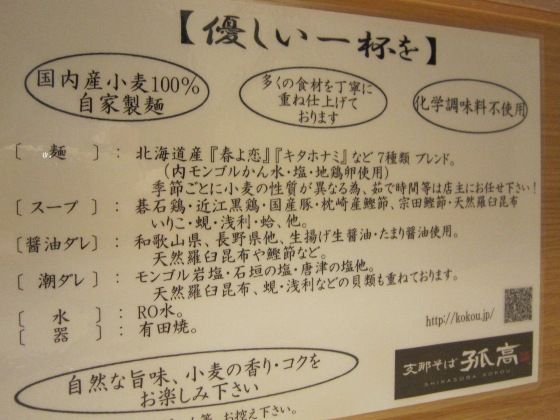 【優しい一杯を】
国内産小麦100%
自家製麺
多くの食材を丁寧に
重ね仕上げて
おります
化学調味料不使用
〔 麺 〕: 北海道産『春よ恋』『キタホナミ』など 7種類 ブレンド。
(内モンゴルかん水・塩・地鶏卵使用)
季節ごとに小麦の性質が異なる為、茹で時間等は店主にお任せ下さい!
〔スープ〕: 碁石鶏・近江黒鶏・国産豚・枕崎産鰹節・宗田鰹節・天然羅臼昆布
いりこ・蜆・浅利・蛤、他。
〔醤油ダレ〕: 和歌山県、長野県他、生揚げ生醤油・たまり醤油使用。
天然羅臼昆布や鰹節など。
〔潮ダレ〕: モンゴル岩塩・石垣の塩・唐津の塩他。
天然羅臼昆布、蜆・浅利などの貝類も重ねております。
〔 水 〕: RO水。
〔 器 〕: 有田焼。
http://kokou.jp/
支那そば 孤高
SHINASOBA KOKOU
自然な旨味、小麦の香り・コクを
お楽しみ下さい
等、お控え下さい。